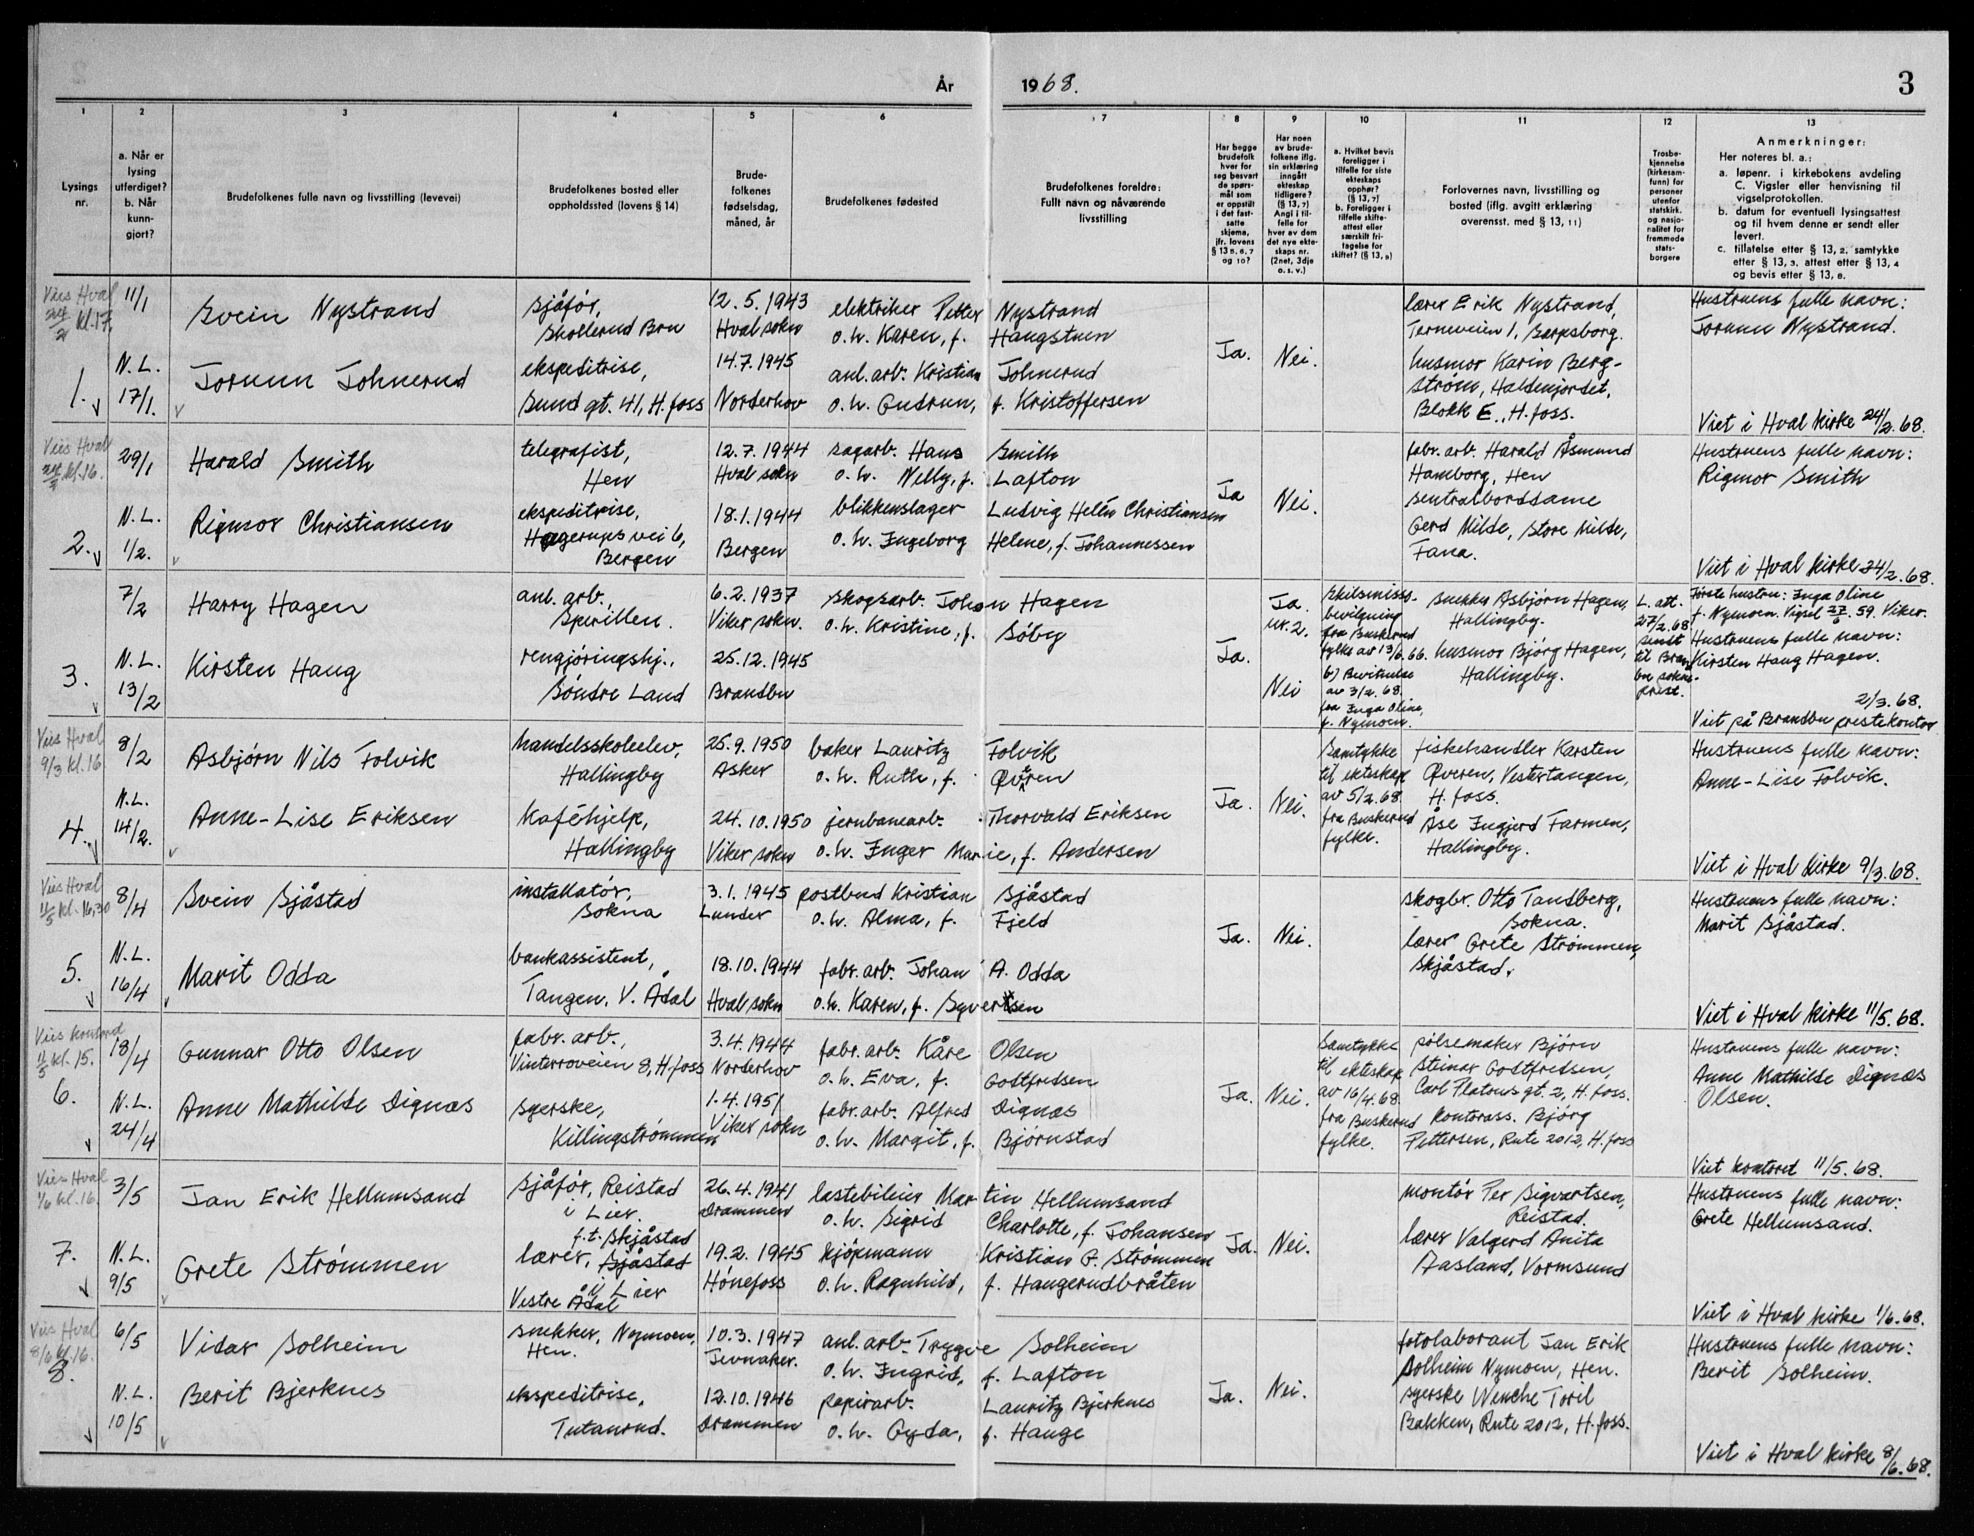 År 1968.
3
1
2
3
4
5
6
7
8
9
10
11
12
13
Lysings
nr.
a. Når er
lysing
utferdiget?
b. Når
kunn-
gjort?
Brudefolkenes fulle navn og livsstilling (levevei)
Brudefolkenes bosted eller
oppholdssted (lovens § 14)
Brude-
folkenes
fødselsdag,
måned, år
Brudefolkenes fødested
Brudefolkenes foreldre:
Fullt navn og nåværende
livsstilling
Har begge
brudefolk
hver for
seg besvart
de spørs-
mål som
er oppstilt
i det fast-
satte
skjema,
jfr. lovens
§ 13 5, 6, 7
og 10?
Har noen
av brude-
folkene iflg.
sin erklæring
inngått
ekteskap
tidligere?
(§ 13, 7)
Angi i til-
felle for
hver av dem
det nye ekte-
skaps nr.
(2net, 3dje
o. s. v.)
a. Hvilket bevis
foreligger i
tilfelle for siste
ekteskaps
opphør?
(§ 13, 7)
b. Foreligger i
tilfelle skifte-
attest eller
særskilt fri-
tagelse for
skiftet? (§ 13, 8)
Forlovernes navn, livsstilling og
bosted (iflg. avgitt erklæring
overensst. med § 13, 11)
Trosbe-
kjennelse
(kirkesam-
funn) for
personer
utenfor
statskirk.
og nasjo-
nalitet for
fremmede
stats-
borgere
Anmerkninger:
Her noteres bl. a.:
a. løpenr. i kirkebokens avdeling
C. Vigsler eller henvisning til
vigselprotokollen.
b. datum for eventuell lysingsattest
og til hvem denne er sendt eller
levert.
c. tillatelse etter § 13, 2, samtykke
etter § 13, 3, attest etter § 13, 4
og bevis etter § 13, 6.
Vies Hval
24/2 kl.17.
1.
11/1
N.L.
17/1.
Svein Nystrand
Jorunn Johnerud
sjåfør,
Skollerud Bru
ekspeditrise,
Sund gt. 41, H.foss
12.5.1943
Hval sokn
14.7.1945
Norderhov
elektriker Petter Nystrand
o.h. Karen, f. Haugstuen
anl.arb. Kristian Johnerud
o.h. Gudrun, f. Kristoffersen
Ja.
Nei.
lærer Erik Nystrand,
Terneveien 1, Sarpsborg.
husmor Karin Berg-
strøm, Haldenjordet,
Blokk E., H.foss.
Hustruens fulle navn:
Jorunn Nystrand.
Viet i Hval kirke 24/2.68.
Vies Hval
24/2 kl.16.
2.
29/1
N.L.
1/2.
Harald Smith
Rigmor Christiansen
telegrafist,
Hen
ekspeditrise,
Hagerups vei 6,
Bergen
12.7.1944
Hval sokn
18.1.1944
Bergen
sagarb. Hans Smith
o.h. Nelly, f. Lafton
blikkenslager Ludvig Helén Christiansen
o.h. Ingeborg Helene, f. Johannessen
Ja
Nei.
fabr. arb. Harald Åsmund
Hamborg, Hen
sentralborddame
Gerd Milde, Store Milde,
Fana.
Hustruens fulle navn:
Rigmor Smith
Viet i Hval kirke 24/2.68.
3.
7/2
N.L.
13/2
Harry Hagen
Kirsten Haug
anl. arb.,
Sperillen.
rengjøringshj.,
Søndre Land
6.2.1937
Viker sokn.
25.12.1945
Brandbu
skogsarb. Johan Hagen
o.h. Kristine, f. Søby
Ja.
Ja.
nr.2.
Nei
skilsmisse-
bevilgning
fra Buskerud
fylke av 13/6.66.
b) Bevitnelse
av 3/2.68.
fra Inga Oline,
f. Nymoen.
snekker Asbjørn Hagen,
Hallingby.
husmor Bjørg Hagen,
Hallingby.
L. att.
27/2.68
sendt
til Brand
bu sokne-
prest.
Første hustru: Inga Oline
f. Nymoen. Vigsel 27/6.59. Viker.
Hustruens fulle navn:
Kirsten Haug Hagen.
2/3.68.
Viet på Brandbu prestekontor
Vies Hval
9/3 kl.16
4.
8/2
N.L.
14/2.
Asbjørn Nils Folvik
Anne-Lise Eriksen
handelsskoleelev,
Hallingby
Kaféhjelp,
Hallingby
25.9.1950
Asker
24.10.1950
Viker sokn
baker Lauritz Folvik
o.h. Ruth, f. Øveren
jernbanearb. Thorvald Eriksen
o.h. Inger Marie, f. Andersen
Ja.
Nei.
Samtykke
til ekteskap
av 5/2.68
fra Buskerud
fylke.
fiskehandler Karsten
Øveren, Vestertangen,
H.foss.
Åse Ingjerd Farmen,
Hallingby.
Hustruens fulle navn:
Anne-Lise Folvik.
Viet i Hval kirke 9/3.68.
Vies Hval
11/5 kl.16,30
5.
8/4
N.L.
16/4
Svein Sjåstad
Marit Odda
installatør,
Sokna
bankassistent,
Tangen, V. Ådal
3.1.1945
Lunder
18.10.1944
Hval sokn
postbud Kristian Sjåstad
o.h. Alma, f. Fjeld
fabr.arb. Johan A. Odda
o.h. Karen, f. Syvertsen
Ja.
Nei.
skogbr. Otto Tandberg,
Sokna.
lærer Grete Strømmen,
Skjåstad.
Hustruens fulle navn:
Marit Sjåstad.
Viet i Hval kirke 11/5.68.
Vies kontoret
11/5 kl.15.
6.
18/4
N.L.
24/4
Gunnar Otto Olsen
Anne Mathilde Dignæs
fabr. arb.,
Vinterroveien 8, H.foss
syerske,
Killingstrømmen
3.4.1944
Norderhov
1.4.1951
Viker sokn
fabr. arb. Kåre Olsen
o.h. Eva, f. Gottfredsen
fabr.arb. Alfred Dignæs
o.h. Margit, f. Bjørnstad
Ja.
Nei.
Samtykke
til ekteskap
av 16/4.68
fra Buskerud
fylke.
pølsemaker Bjørn
Steinar Gottfredsen,
Carl Platous gt. 2, H.foss.
Kontorass. Bjørg
Pettersen, Rute 2012, H.foss
Hustruens fulle navn:
Anne Mathilde Dignæs
Olsen.
Viet kontoret 11/5.68.
Vies Hval
1/6 kl.16.
7.
3/5
N.L.
9/5
Jan Erik Hellumsand
Grete Strømmen
sjåfør, Reistad
i Lier.
f.t. Skjåstad
lærer, Sjåstad
i Lier
Vestre Ådal
26.4.1941
Drammen
19.2.1945
Hønefoss
lastebileier Martin Hellumsand
o.h. Sigrid Charlotte, f. Johansen
kjøpmann Kristian G. Strømmen
o.h. Ragnhild, f. Haugerudbråten
Ja.
Nei.
montør Per Sigvartsen,
Reistad.
lærer Valgerd Anita
Aasland, Vormsund
Hustruens fulle navn:
Grete Hellumsand.
Viet i Hval kirke 1/6.68.
Vies Hval
8/6 kl.16.
8.
6/5
N.L.
10/5
Vidar Solheim
Berit Bjerknes
snekker, Nymoen,
Hen.
ekspeditrise,
Tutanrud.
10.3.1947
Jevnaker.
12.10.1946
Drammen
anl. arb. Trygve Solheim
o.h. Ingrid, f. Lafton
papirarb. Lauritz Bjerknes
o.h. Gyda, f. Hauge
Ja.
Nei.
fotolaborant Jan Erik
Solheim Nymoen, Hen.
syerske Wenche Toril
Bakken, Rute 2012, H.foss.
Hustruens fulle navn:
Berit Solheim.
Viet i Hval kirke 8/6.68.